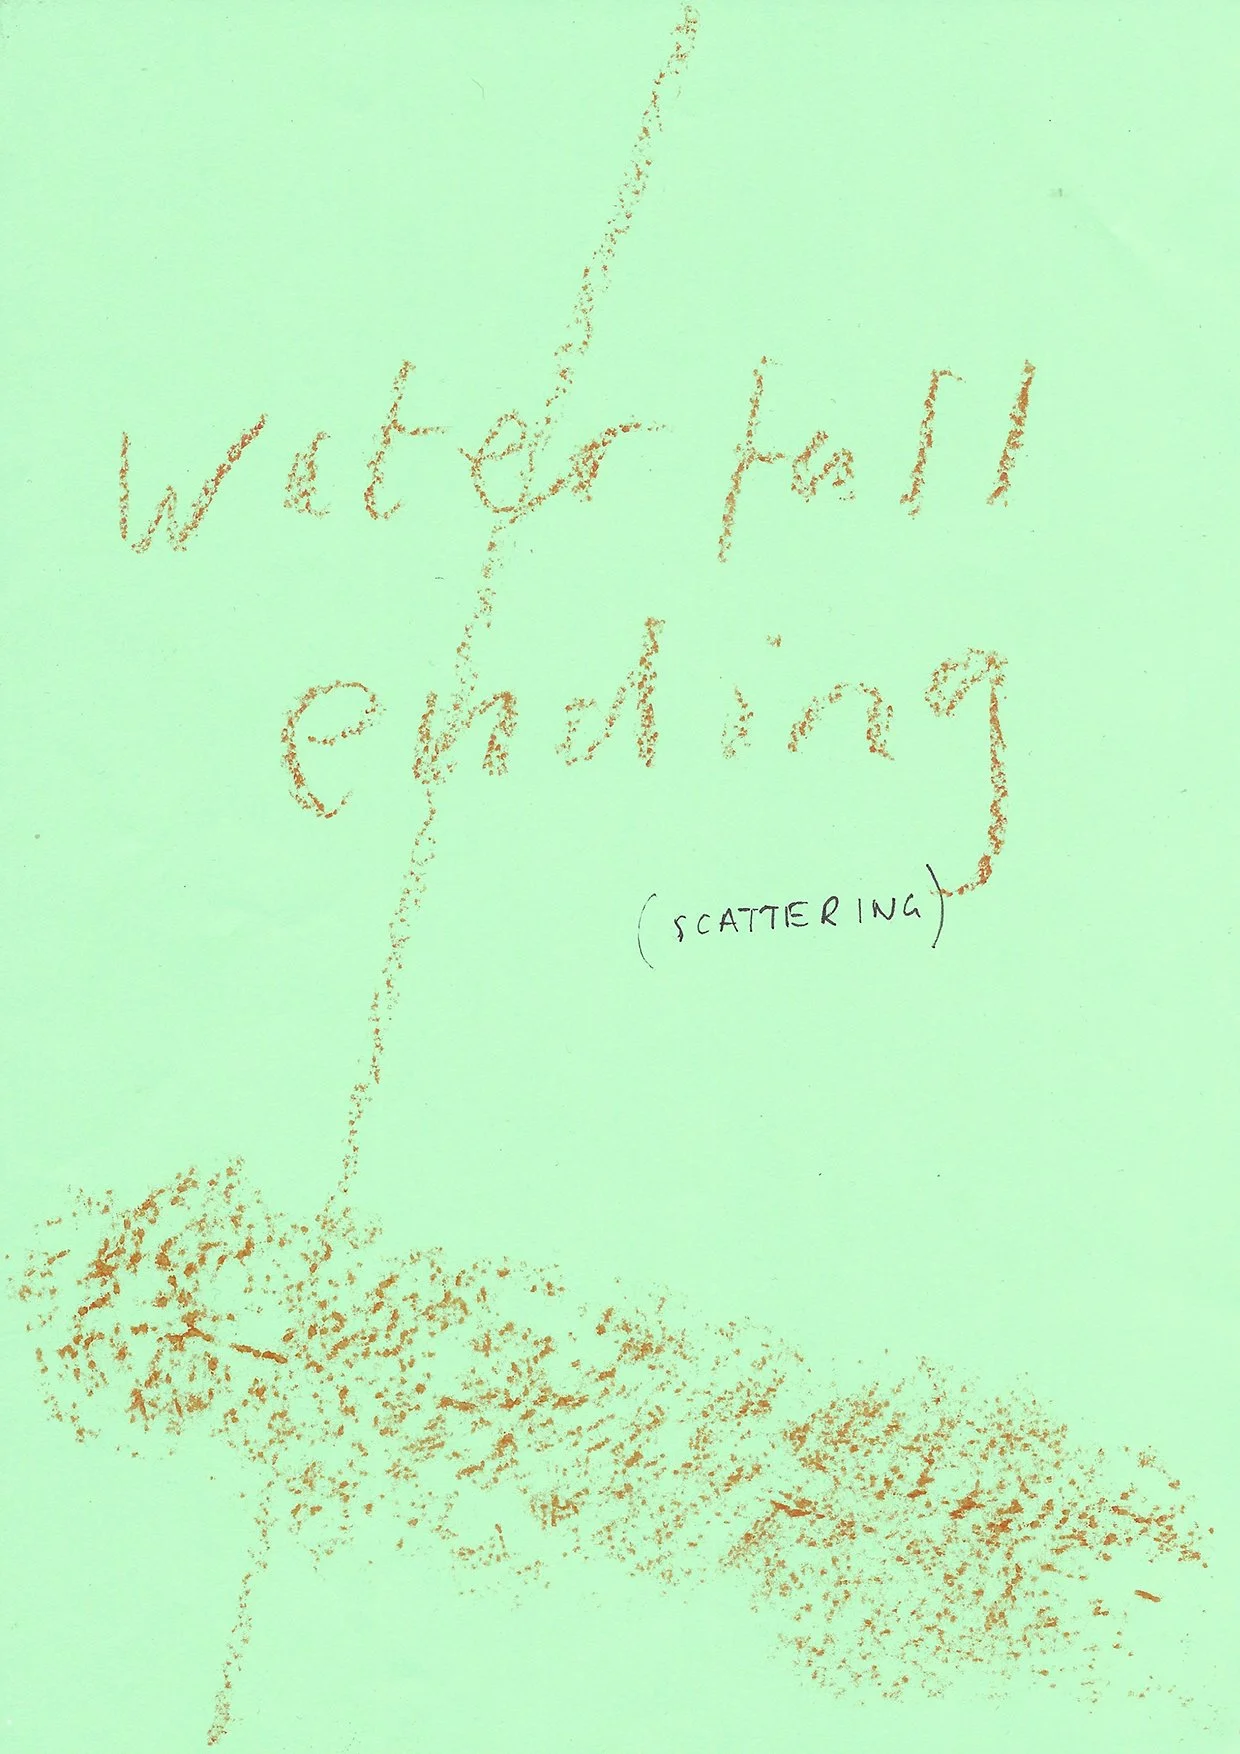 water fall
ending
(SCATTERING)